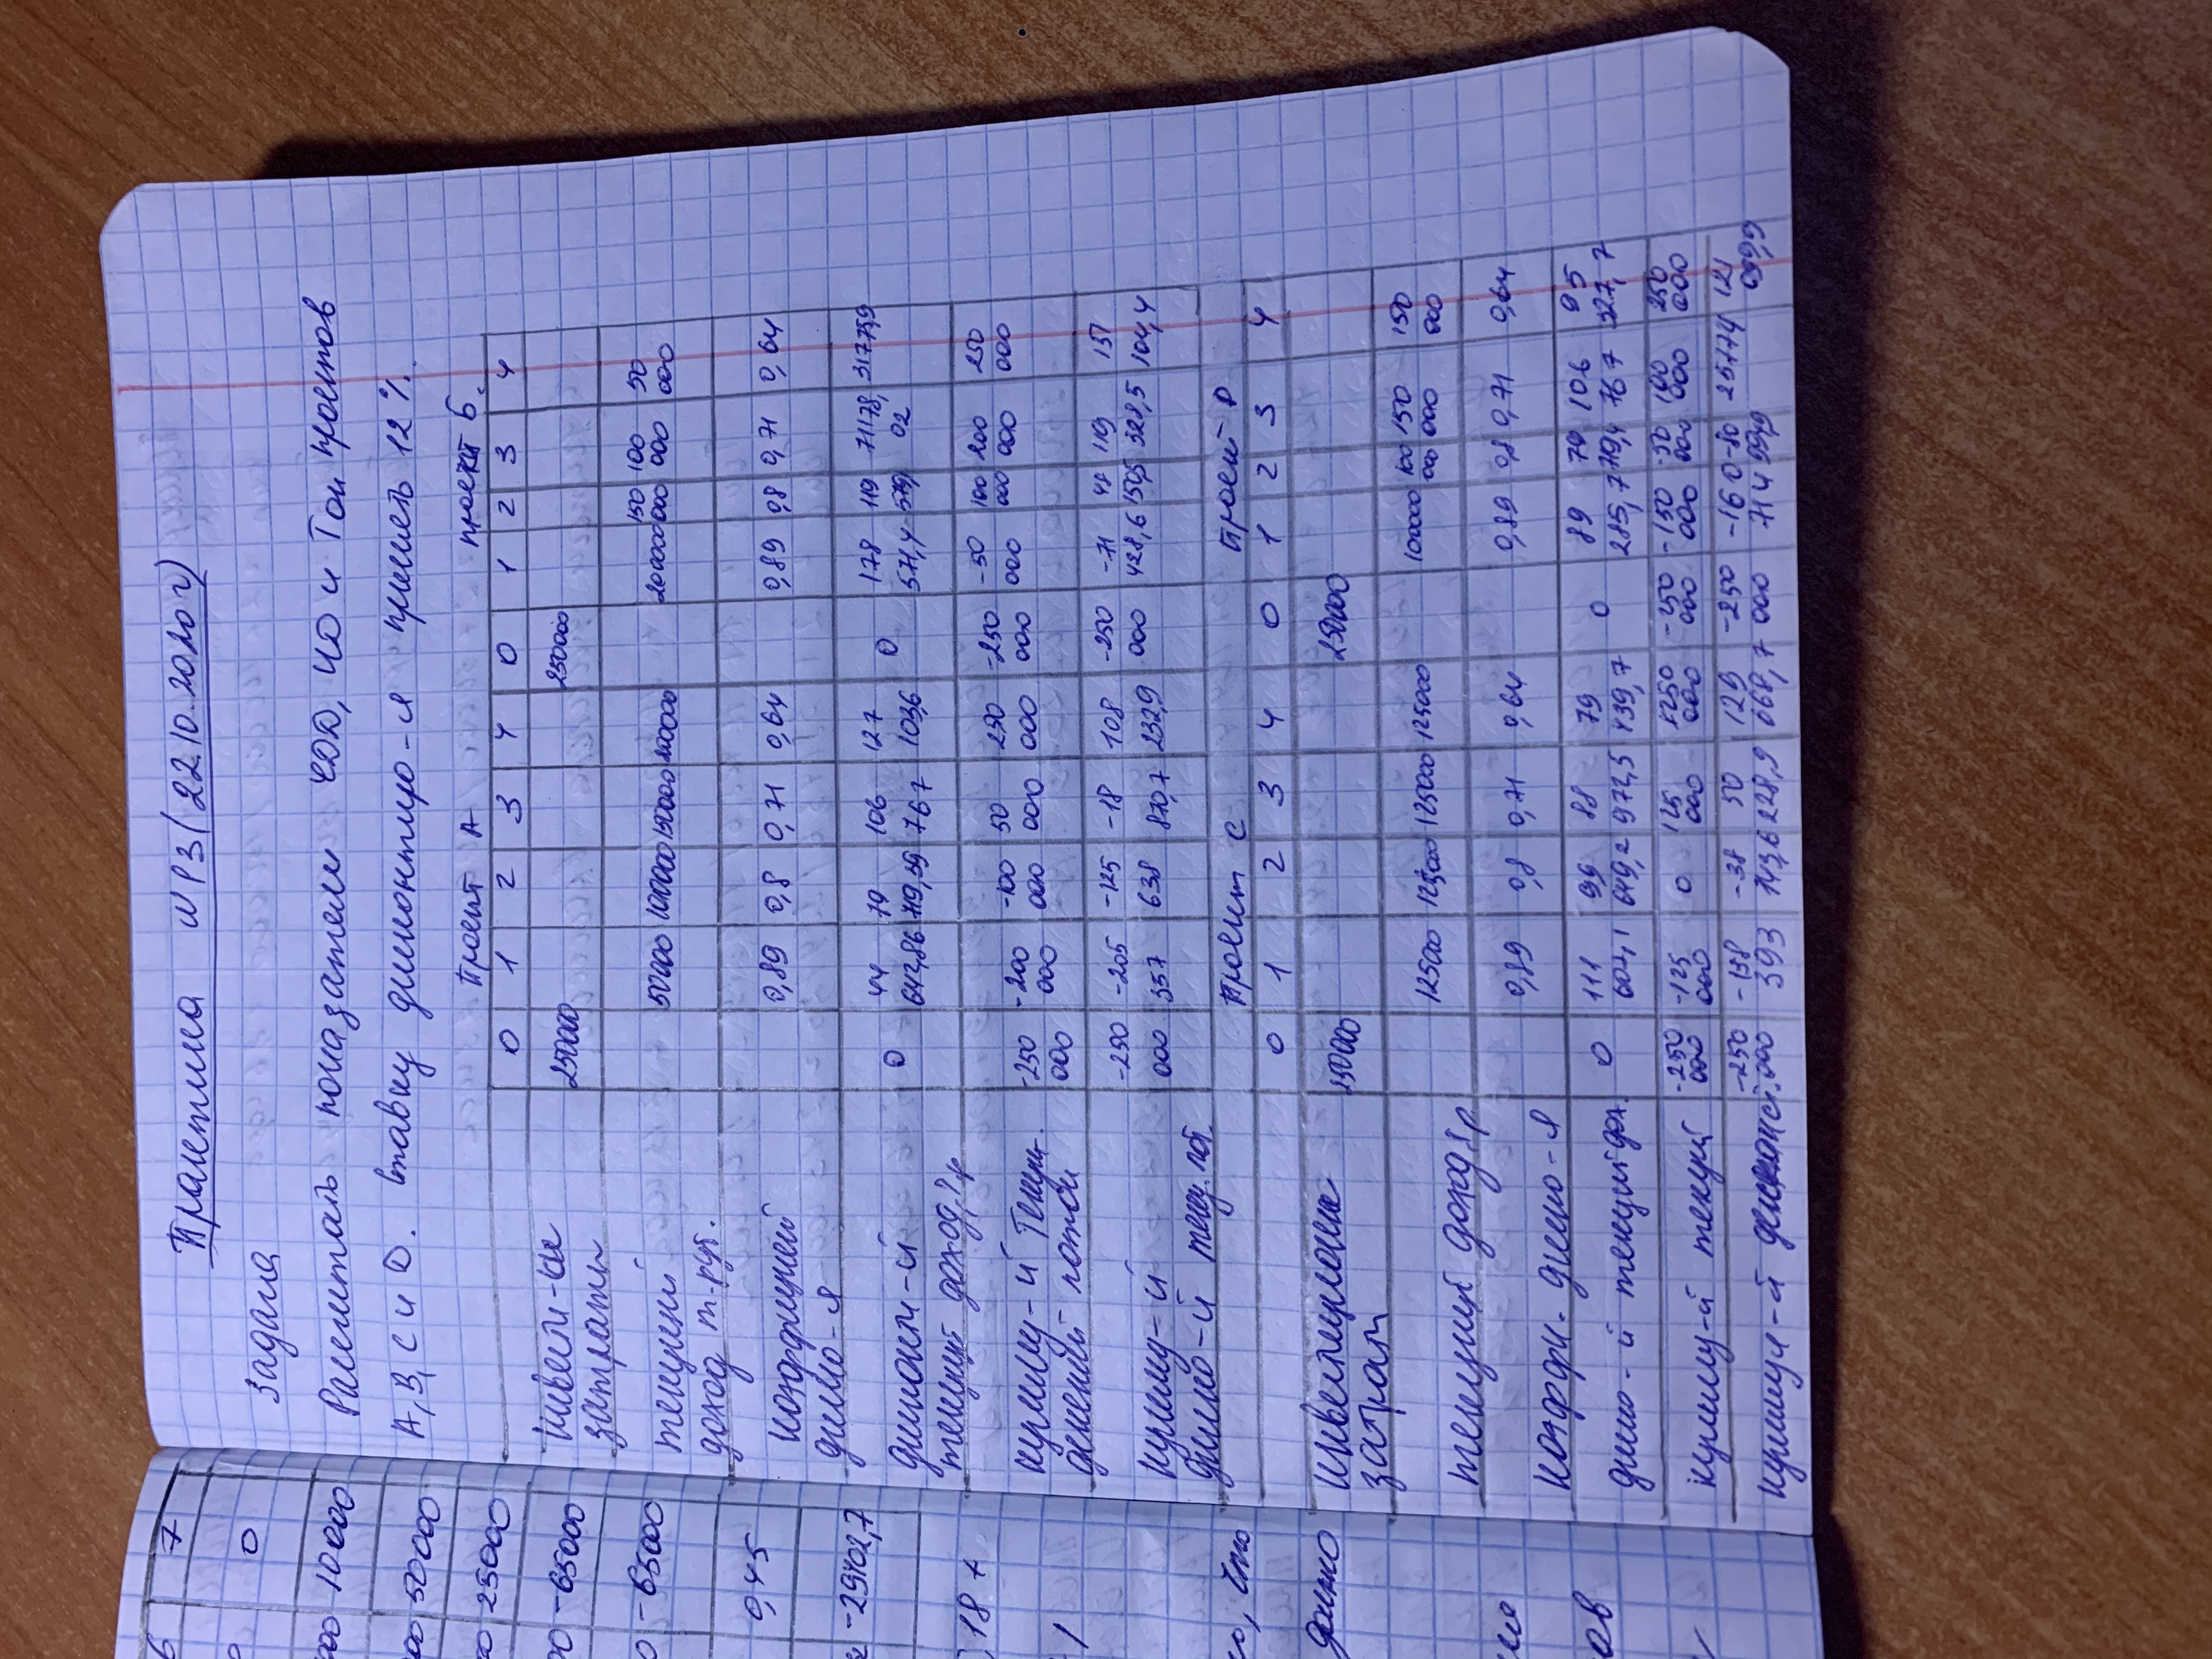 6 7
0
000 10000
000 50000
0 25000
00 -65000
0 -65000
0,45
-29402,7
18 +
о, что
должно
ов
Практика №3 (22.10.2020г)
Задача
Рассчитать показатели ЧДД, ИД и Ток проектов
А, В, С и D. Ставку дисконтиро-я принять 12%.
Проект А проект Б.
0 1 2 3 4 0 1 2 3 4
Инвести-ые затраты 250000 250000
текущий доход т.руб. 50000 100000 150000 200000 200000 150 000 100 000 50 000
Коэффициент диско-я 0,89 0,8 0,71 0,64 0,89 0,8 0,71 0,64
дисконт-й текущий доход, т.р 0 44 642,86 79 719,39 106 767 127 103,6 0 178 571,4 119 579, 71178,02 31775,9
кумму-й текущ. денежный поток -250 000 -200 000 -100 000 50 000 250 000 -250 000 -50 000 100 000 200 000 250 000
кумму-й диско-й теку. пот. -250 000 -205 357 -125 638 -18 870,7 108 232,9 -250 000 -71 428,6 48 150,5 119 328,5 151 104,4
Проект С Проект D
0 1 2 3 4 0 1 2 3 4
Инвестиционные затрат 250000 250000
текущий доход т.р. 125000 125000 125000 125000 100000 100 000 150 000 150 000
Коэффи. диско-я 0,89 0,8 0,71 0,64 0,89 0,8 0,71 0,64
диско-й текущий дох. 0 111 607,1 99 649,2 88 972,5 79 439,7 0 89 285,7 79 719,4 106 767 95 327,7
куммму-й текущий -250 000 -125 000 0 125 000 250 000 -250 000 -150 000 -50 000 100 000 250 000
куммуля-й -250 000 -138 393 -38 743,6 50 228,9 129 668,7 -250 000 -160 714 -80 994,9 25774 121 099,9